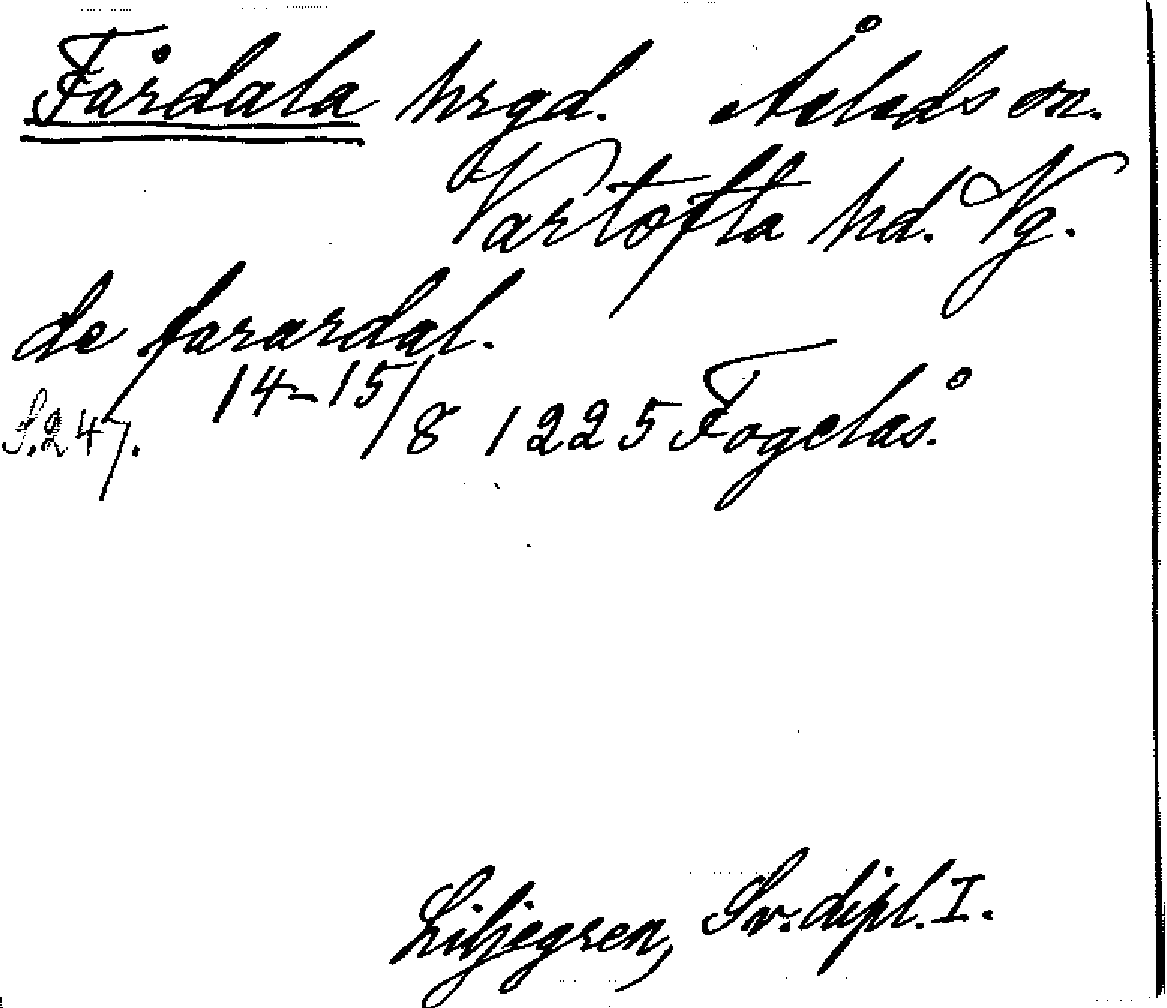 Fårdala hrgd. Åsleds sn.
Vartofta hd. Vg.
de farardal.
S. 247. 14-15/8 1225 Fogelås.
Liljegren, Sv. dipl. I.